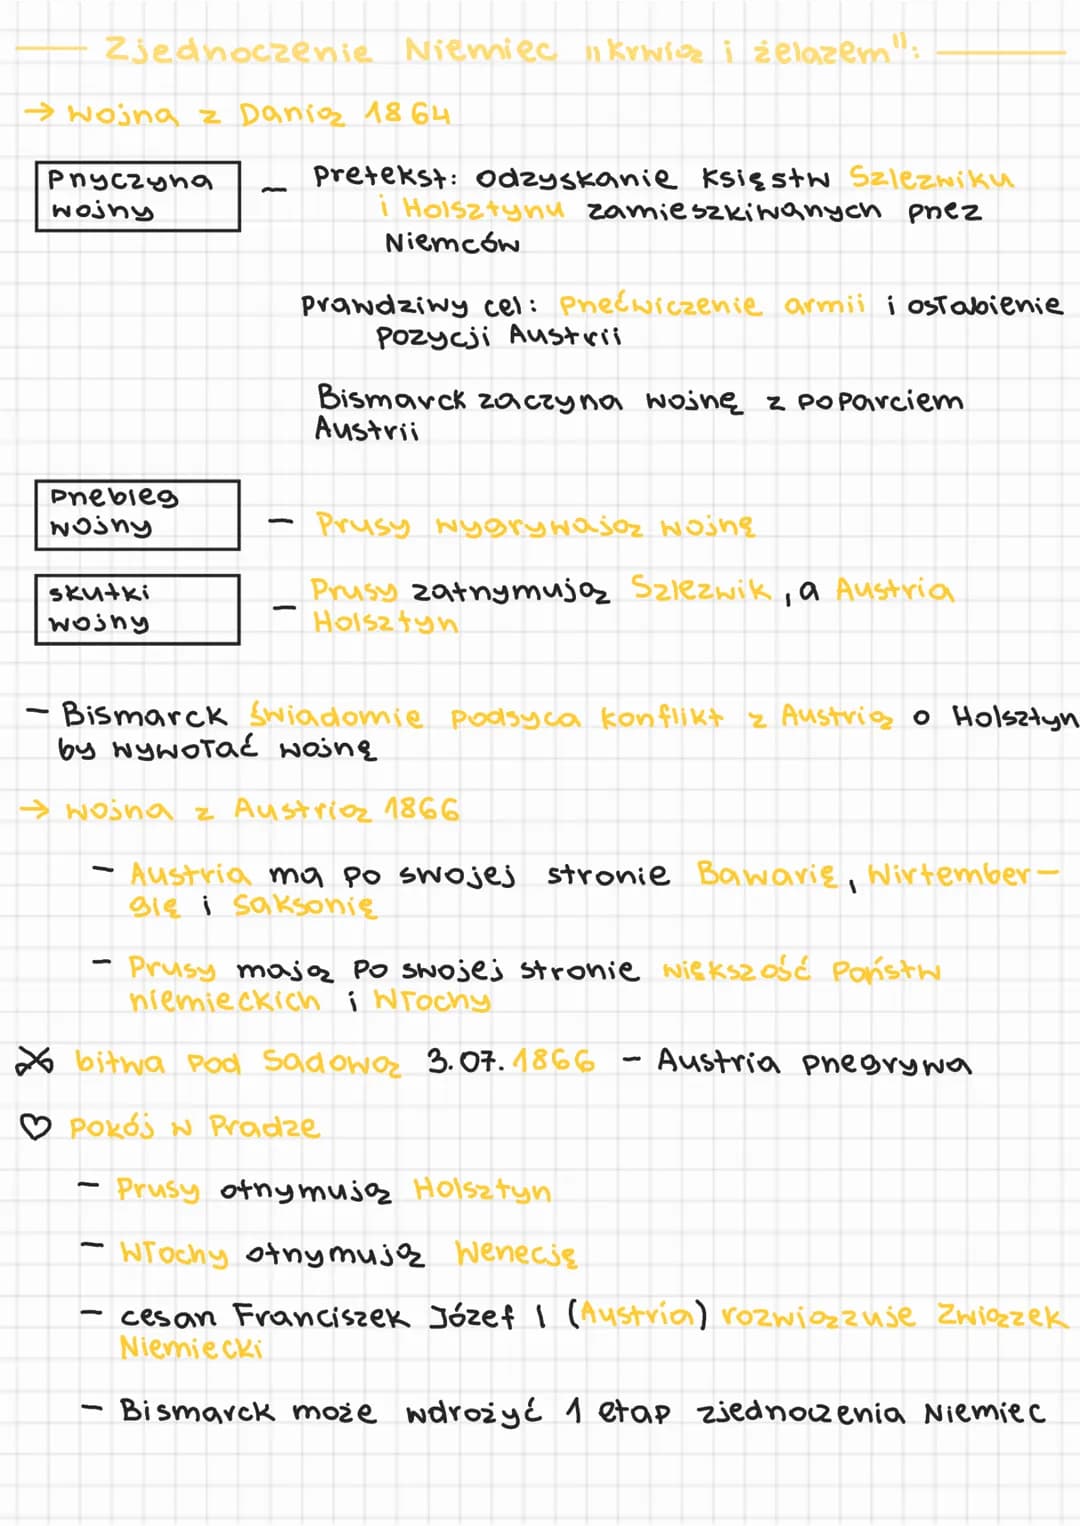 Zjednoczenie Niemiec „krwią i żelazem":
→ wojna z Danią 1864
Przyczyna
wojny
- pretekst: odzyskanie księstw Szlezwiku
i Holsztynu zamieszkiwanych przez
Niemców
prawdziwy cel: przećwiczenie armii i osłabienie
pozycji Austrii
Bismarck zaczyna wojnę z poparciem
Austrii
przebieg
wojny
- Prusy wygrywają wojnę
skutki
wojny
- Prusy zatrzymują Szlezwik, a Austria
Holsztyn
- Bismarck świadomie podsyca konflikt z Austrią o Holsztyn
by wywołać wojnę
→ wojna z Austrią 1866
- Austria ma po swojej stronie Bawarię, Wirtember-
gię i Saksonię
- Prusy mają po swojej stronie większość państw
niemieckich i Włochy
bitwa pod Sadową 3.07.1866 - Austria przegrywa
♡ pokój w Pradze
- Prusy otrzymują Holsztyn
- Włochy otrzymują Wenecję
- cesarz Franciszek Józef I (Austria) rozwiązuje Związek
Niemiecki
- Bismarck może wdrożyć 1 etap zjednoczenia Niemiec